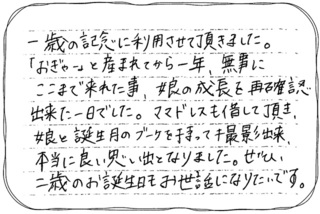 一歳の記念に利用させて頂きました。
「おぎゃー」と産まれてから一年、無事に
ここまで来れた事、娘の成長を再確認
出来た一日でした。ママドレスも借して頂き、
娘と誕生月のブーケを持って撮影出来、
本当に良い思い出となりました。ぜひ、
二歳のお誕生日もお世話になりたいです。